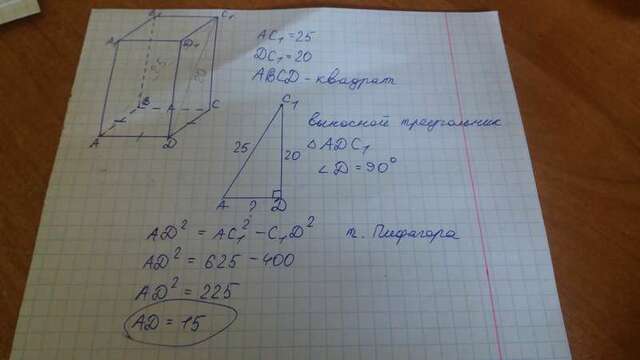 B₁ C₁
A₁ D₁
25 20
B C
A D
AC₁ = 25
DC₁ = 20
ABCD - квадрат
C₁
25 20
A ? D
выносной треугольник
△ ADC₁
∠D = 90°
AD² = AC₁² - C₁D² т. Пифагора
AD² = 625 - 400
AD² = 225
AD = 15